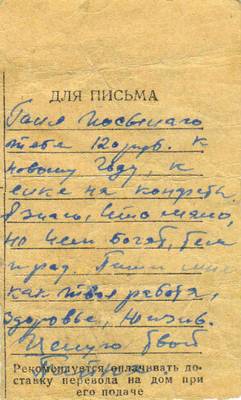 ДЛЯ ПИСЬМА
Галя посылаю
тебе 120 руб. к
новому году, к
елке на конфеты.
Я знаю, что мало,
но чем богат, тем
и рад. Пиши мне
как твоя работа,
здоровье, жизнь.
Целую твой
Рекомендуется оплачивать до-
ставку перевода на дом при
его подаче